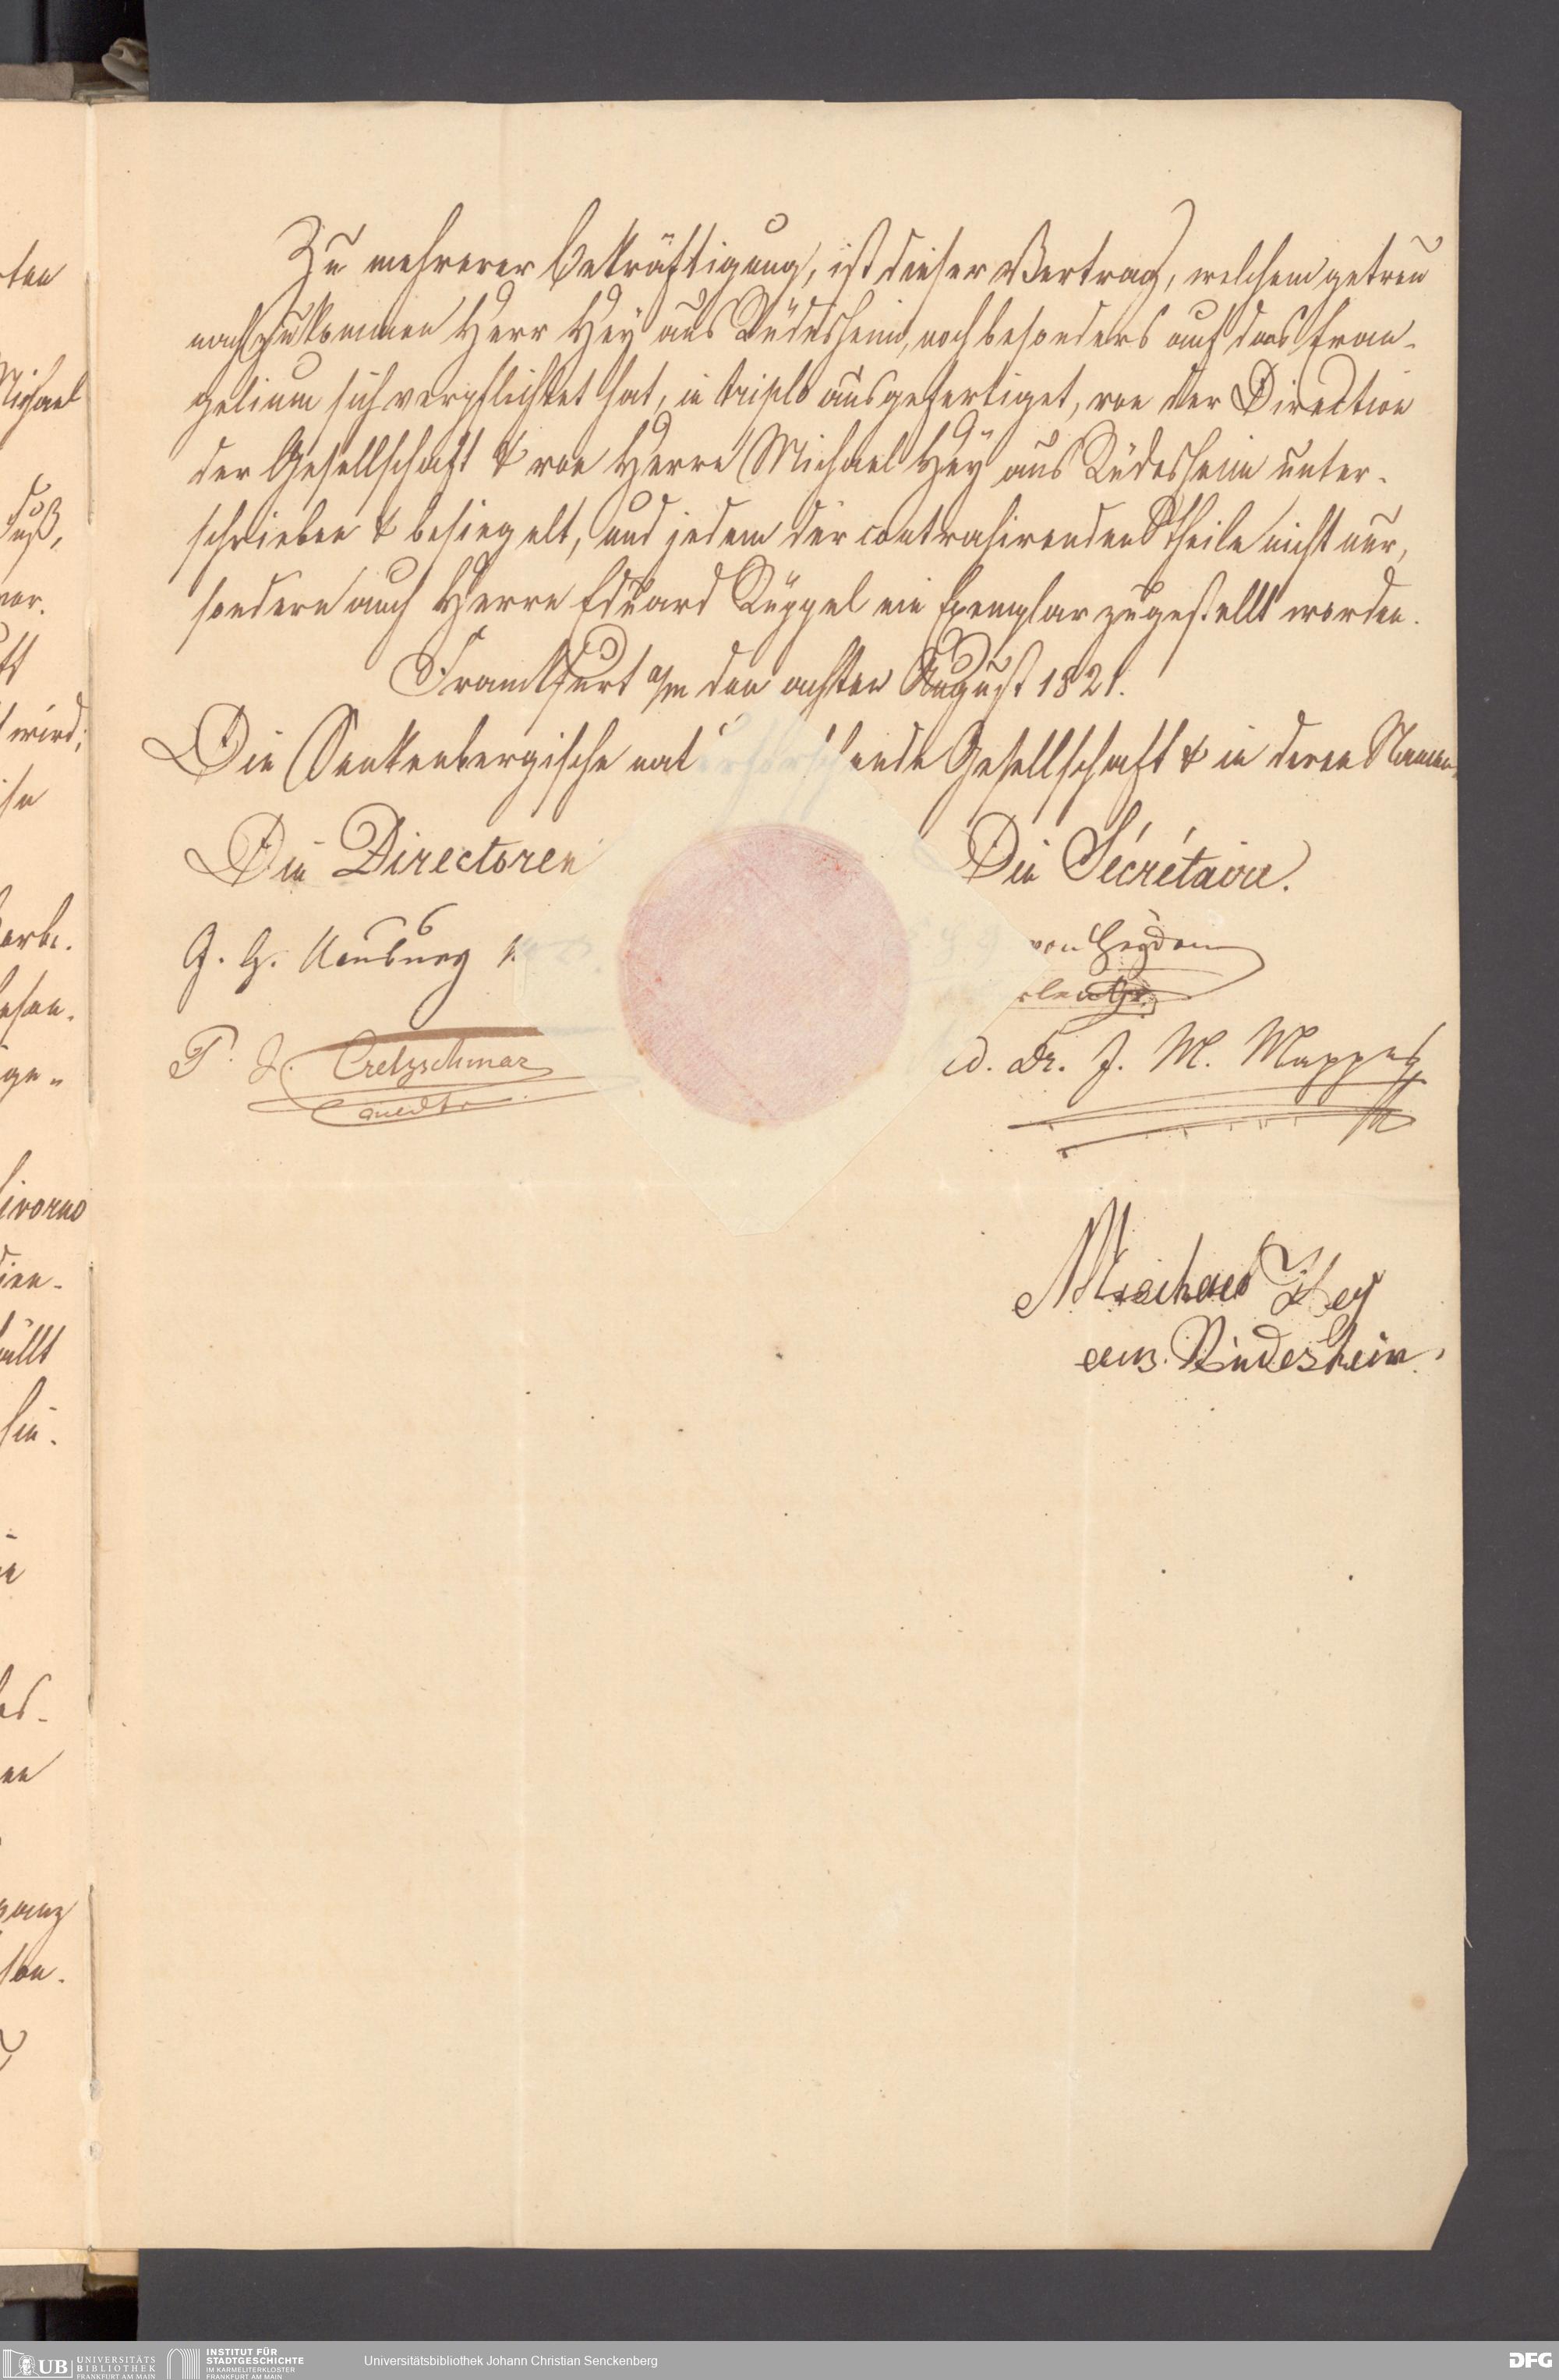 Zu mehrerer Bekräftigung, ist dieser Vertrag, welchem getreu
nachzukommen Herr Hey aus Rüdesheim, noch besonders auf das Evan-
gelium sich verpflichtet hat, in triplo ausgefertiget, von der Direction
der Gesellschaft & von Herrn Michael Hey aus Rüdesheim unter-
schrieben & besiegelt, und jedem der contrahirenden Theile nicht nur,
sondern auch Herrn Eduard Rüppel ein Exemplar zugestellt worden.
Frankfurt a/m den achten August 1821.
Die Senkenbergische nat ende Gesellschaft & in deren Namen
Die Directoren
Die Sécrétaire.
J. G. Neuburg
von Heyden
P. J. Cretzschmar
d. Dr. J. M. Mappes
Michael Hey
aus Rüdesheim.
ten
Michael
wird;
ivorno
ganz
UB UNIVERSITÄTS
BIBLIOTHEK
FRANKFURT AM MAIN
INSTITUT FÜR
STADTGESCHICHTE
IM KARMELITERKLOSTER
FRANKFURT AM MAIN
Universitätsbibliothek Johann Christian Senckenberg
DFG